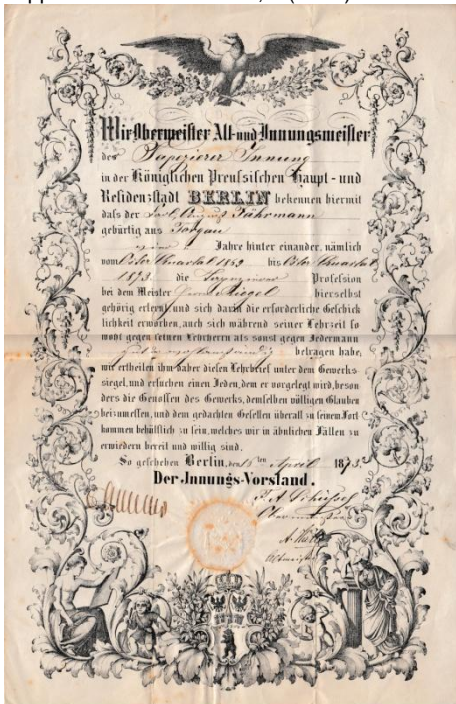 Wir Obermeister Alt- und Innungsmeister
des Tapezierer Innung
in der Königlichen Preussischen Haupt- und
Residenzstadt BERLIN bekennen hiermit
dass der Carl August Fährmann
gebürtig aus Torgau
Jahre hinter einander, nämlich
vom Oster Quartal bis Oster Quartal
1873. die Tapezierer Profession
bei dem Meister Riegel hierselbst
gehörig erlernt, und sich dadurch die erforderliche Geschick
lichkeit erworben, auch sich während seiner Lehrzeit so
wohl gegen seinen Lehrherrn als sonst gegen Jedermann
betragen habe;
wir ertheilen ihm daher diesen Lehrbrief unter dem Gewerks-
siegel, und ersuchen einen Jeden, dem er vorgelegt wird, beson
ders die Genossen des Gewerks, demselben völligen Glauben
beizumessen, und dem gedachten Gesellen überall zu seinem Fort
kommen behülflich zu sein, welches wir in ähnlichen Fällen zu
erwiedern bereit und willig sind.
So geschehen Berlin, den 15ten April 1873.
Der Innungs-Vorstand.
Obermeister
Altmeister